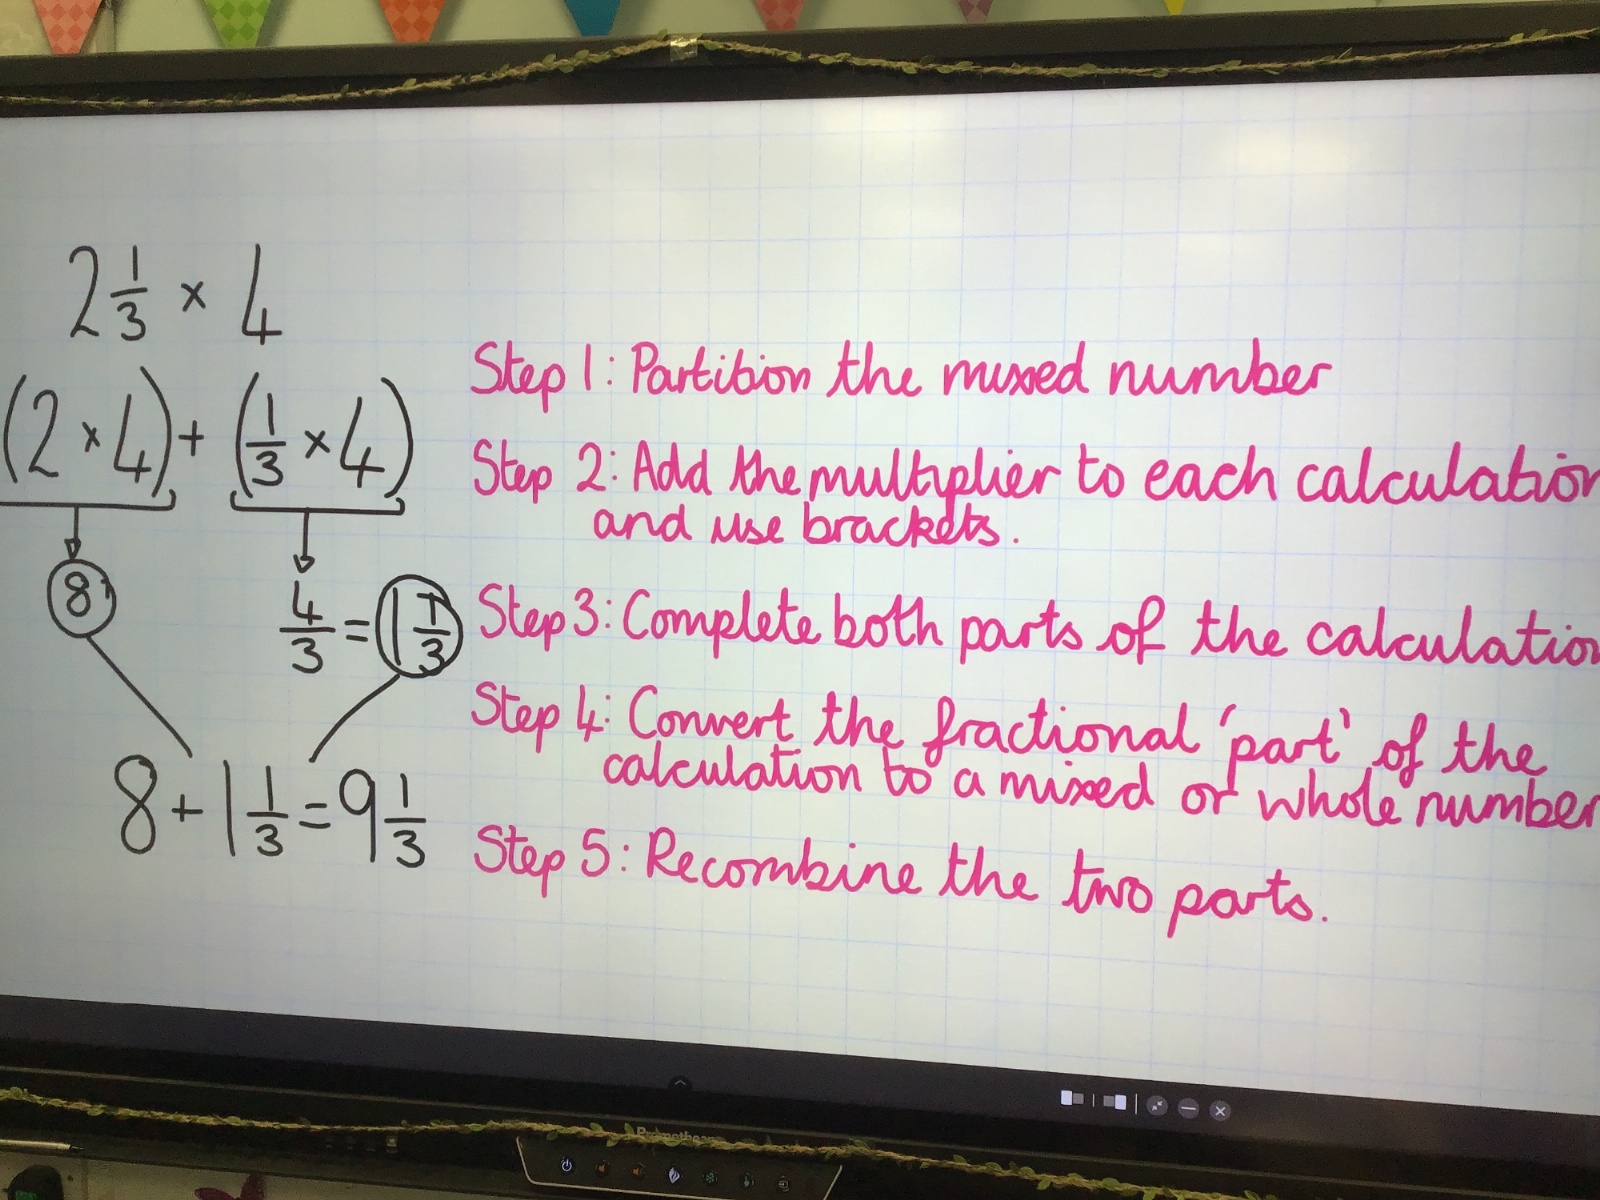 2 1/3 × 4
(2 × 4) + (1/3 × 4)
8
4/3 = 1 1/3
8 + 1 1/3 = 9 1/3
Step 1: Partition the mixed number
Step 2: Add the multiplier to each calculation
and use brackets.
Step 3: Complete both parts of the calculation
Step 4: Convert the fractional 'part' of the
calculation to a mixed or whole number
Step 5: Recombine the two parts.
Promethean